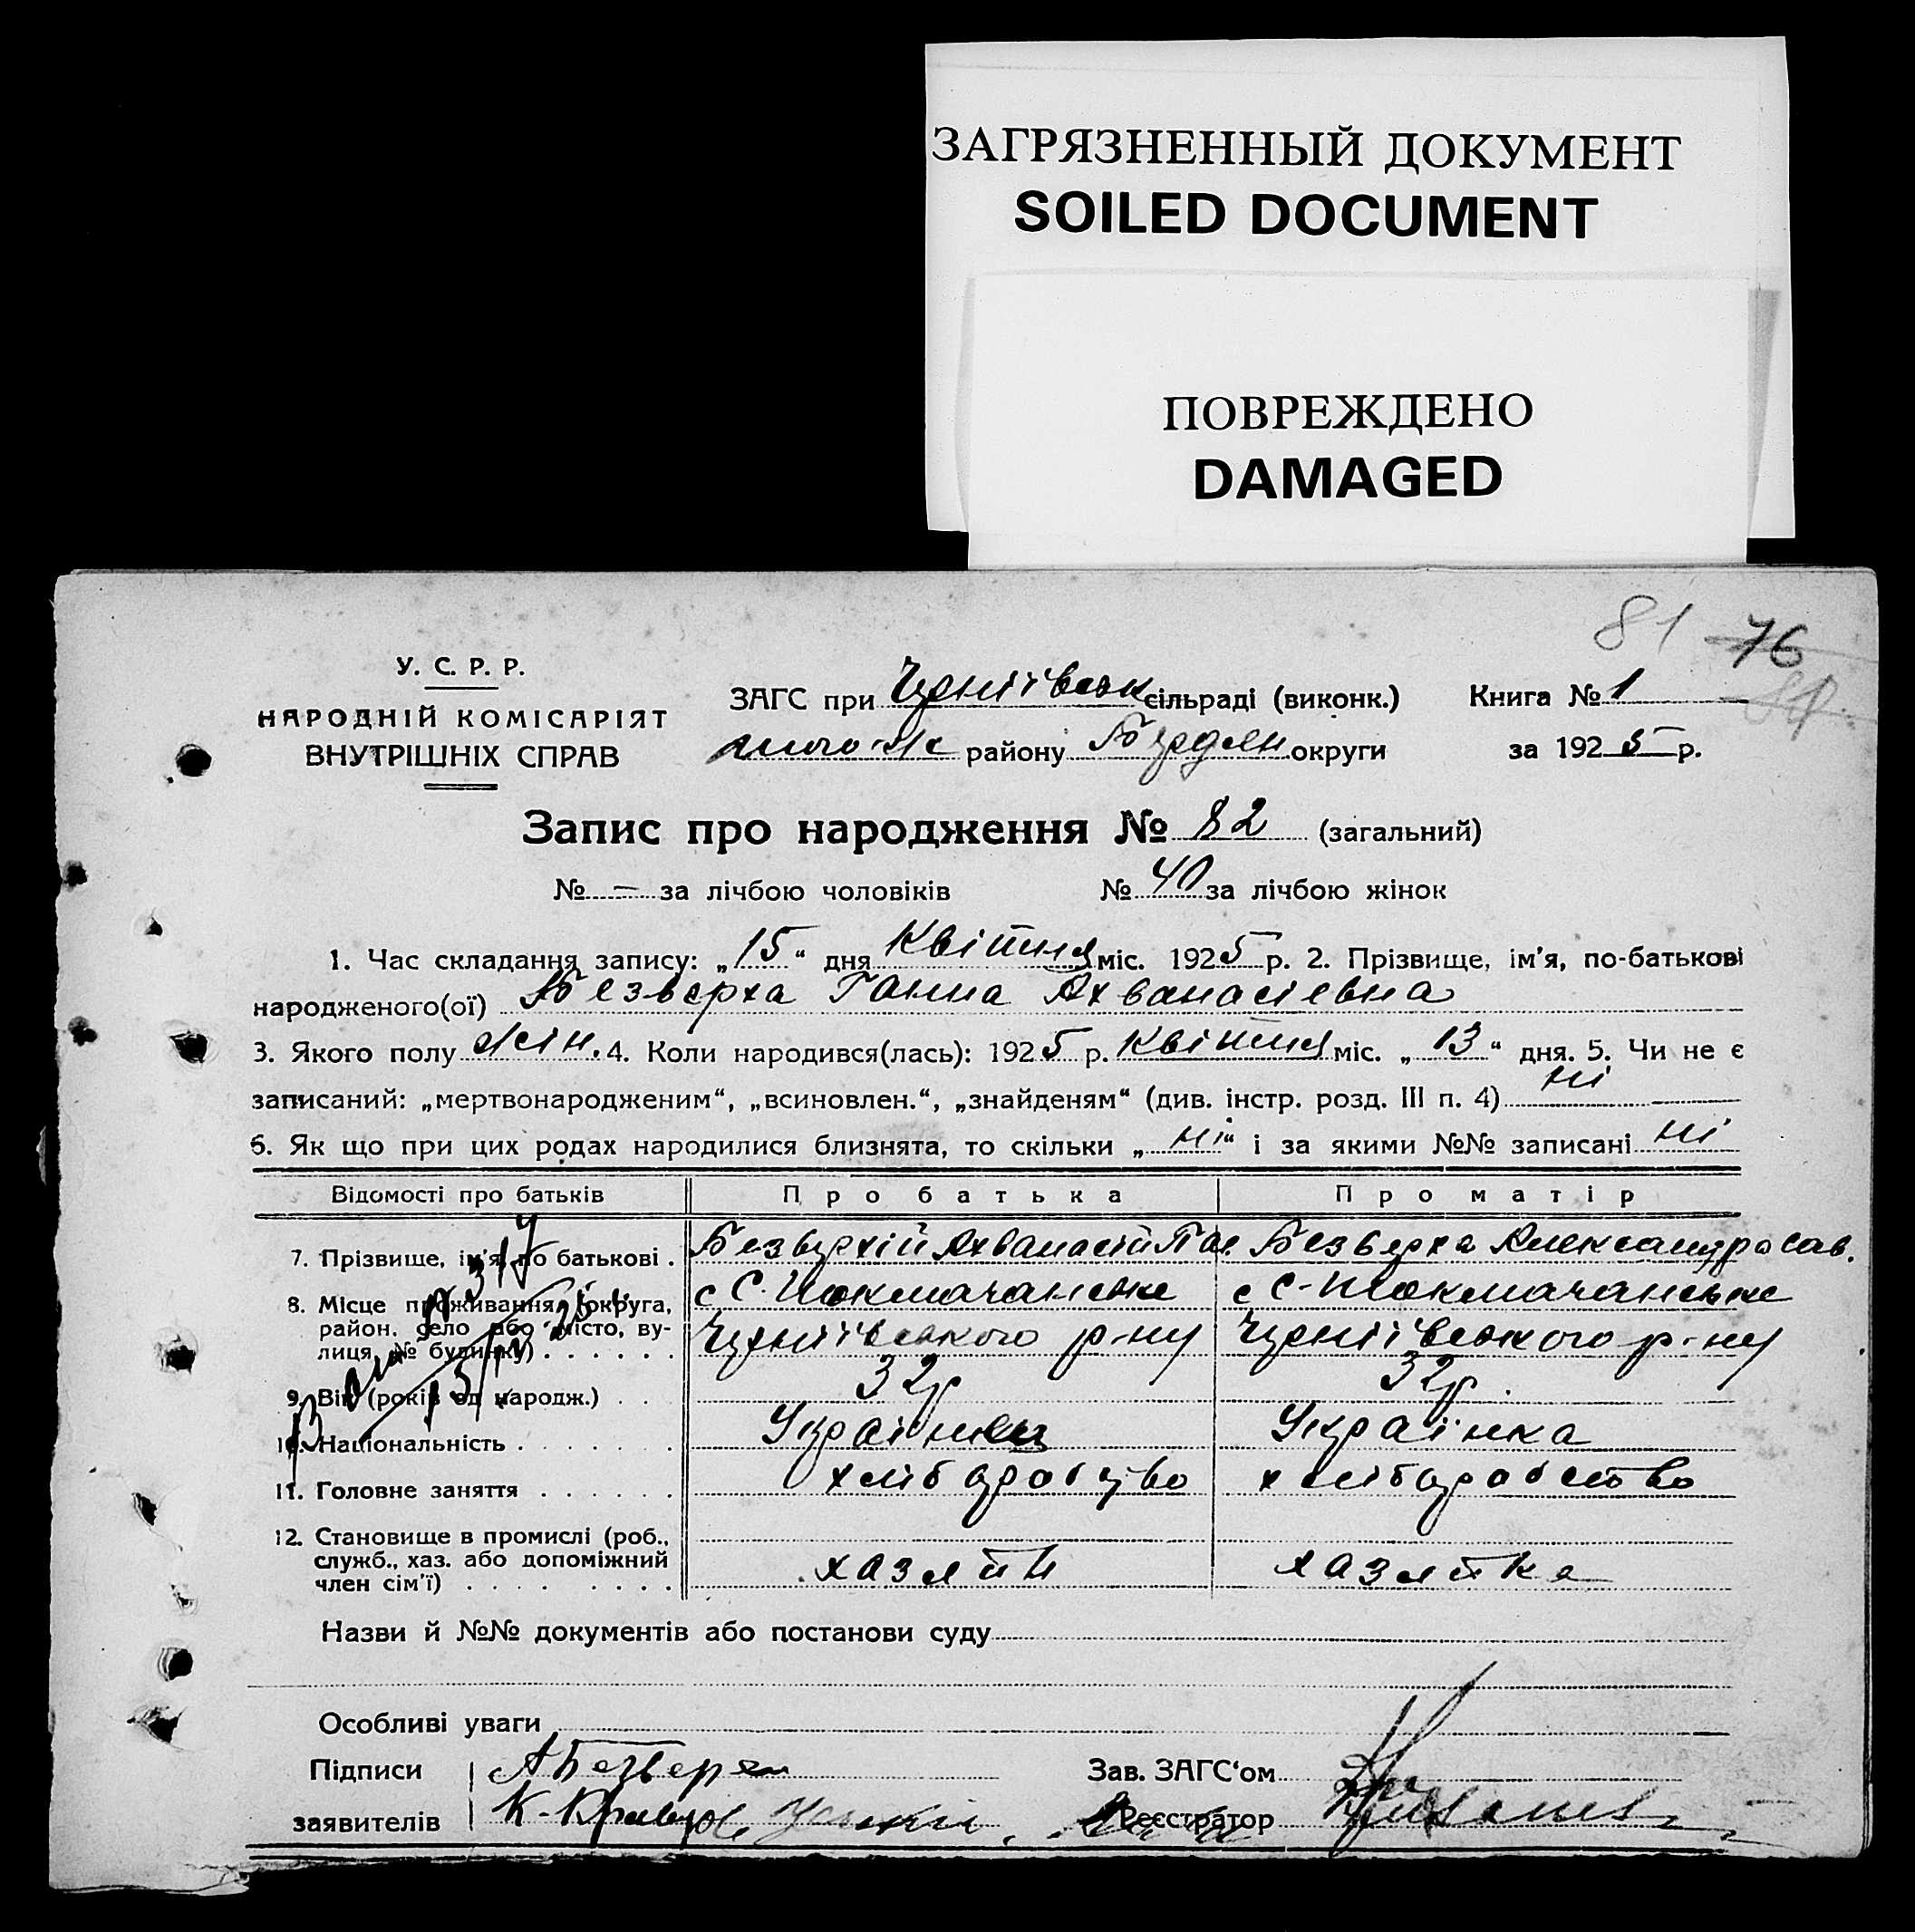 ЗАГРЯЗНЕННЫЙ ДОКУМЕНТ
SOILED DOCUMENT
ПОВРЕЖДЕНО
DAMAGED
81 76
У. С. Р. Р.
НАРОДНІЙ КОМІСАРІЯТ
ВНУТРІШНІХ СПРАВ
ЗАГС при Черніївськ сільраді (виконк.) Книга № 1
того-ж району Бердян округи за 1925 р.
Запис про народження № 82 (загальний)
№ – за лічбою чоловіків № 40 за лічбою жінок
1. Час складання запису: „15“ дня Квітня міс. 1925 р. 2. Прізвище, ім'я, по-батькові
народженого(ої) Безверха Ганна Ахванасіевна
3. Якого полу жін. 4. Коли народився(лась): 1925 р. Квітня міс. „13“ дня. 5. Чи не є
записаний: „мертвонародженим“, „всиновлен.“, „знайденям“ (див. інстр. розд. III п. 4) ні
6. Як що при цих родах народилися близнята, то скільки „ні“ і за якими №№ записані ні
Відомості про батьків Про батька Про матір
7. Прізвище, ім'я, по батькові . Безверхій Ахванасій Пав. Безверха Александра Сав.
8. Місце проживання (округа, с С.-Токмачанське с С-Токмачанське
район, село або місто, ву-
лиця, № будинку) . . . . . . Черніївського р-ну Черніївського р-ну
9. Вік (років од народж.) . . 32р 32р.
10. Національність . . . . . . Українец Українка
11. Головне заняття . . . . . . хліборобцво хліборобство
12. Становище в промислі (роб.,
служб., хаз. або допоміжний
член сім'ї) . . . . . . . . хазяїн хазяйка
Назви й №№ документів або постанови суду
Особливі уваги
Підписи А Безверх Зав. ЗАГС'ом
заявителів К. Кравцов Реєстратор